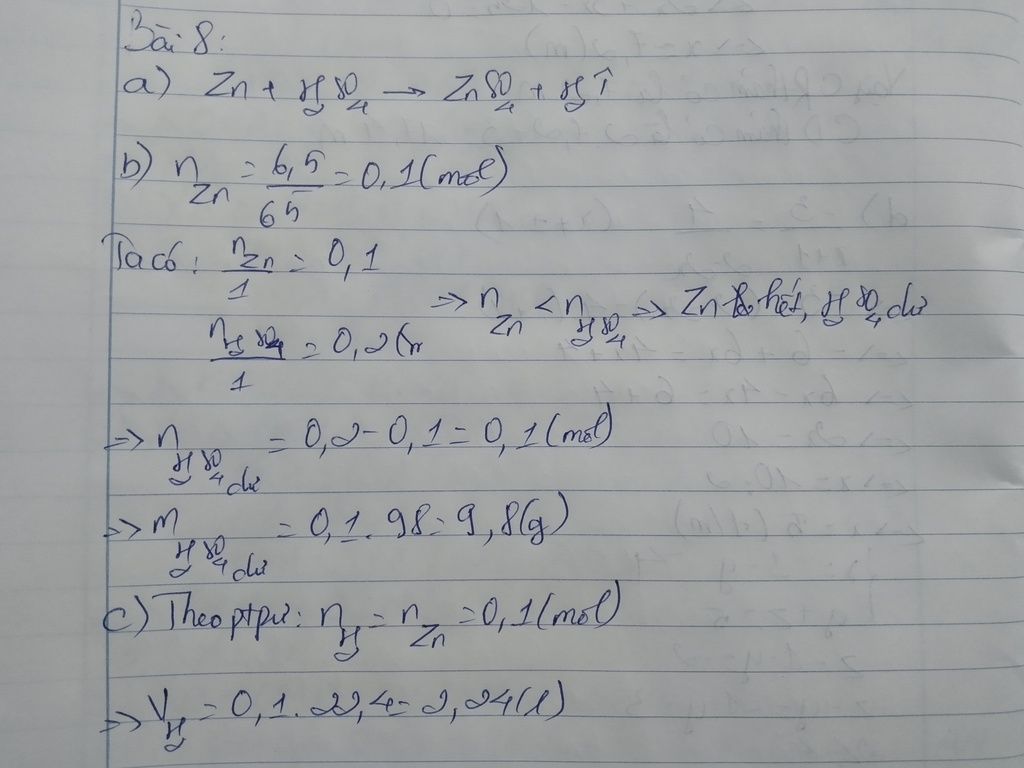 Bài 8:
a) Zn + H2SO4 → ZnSO4 + H2↑
b) nZn = 6,5/65 = 0,1 (mol)
Ta có: nZn/1 = 0,1
nH2SO4/1 = 0,2 (m
=> nZn < nH2SO4 => Zn hết, H2SO4 dư
=> nH2SO4 dư = 0,2 - 0,1 = 0,1 (mol)
=> mH2SO4 dư = 0,1 . 98 = 9,8 (g)
c) Theo ptpư: nH2 = nZn = 0,1 (mol)
=> VH2 = 0,1 . 22,4 = 2,24 (l)